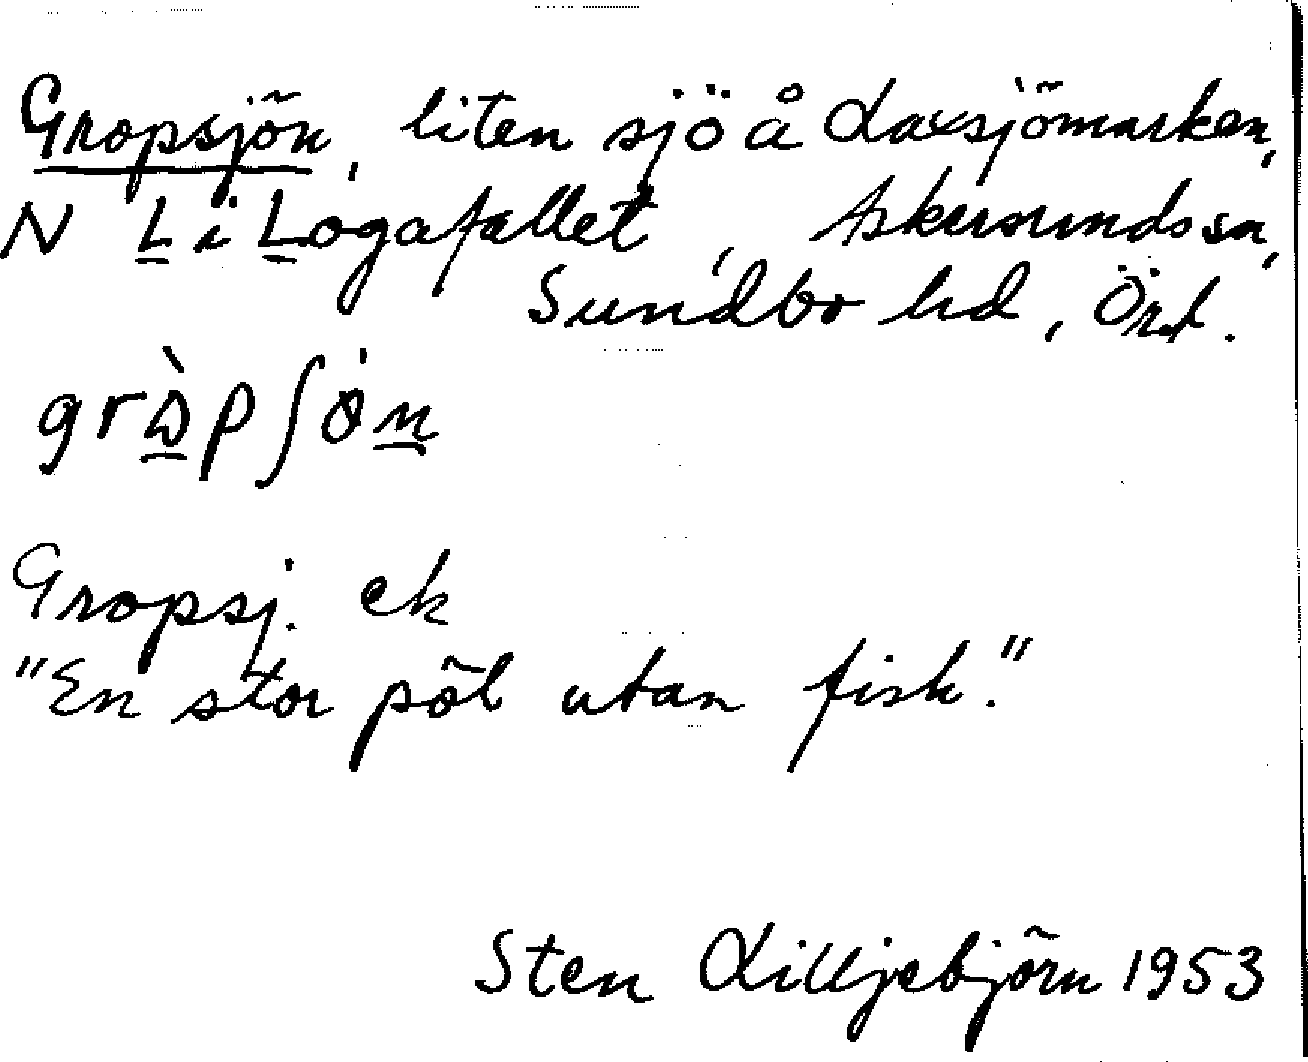 Gropsjön, liten sjö å Laxsjömarken,
N L i Logafallet, Askersunds sn,
Sundbo hd, Örl.
Gropsj. ek
"En stor pöl utan fisk."
Sten Lilljebjörn 1953